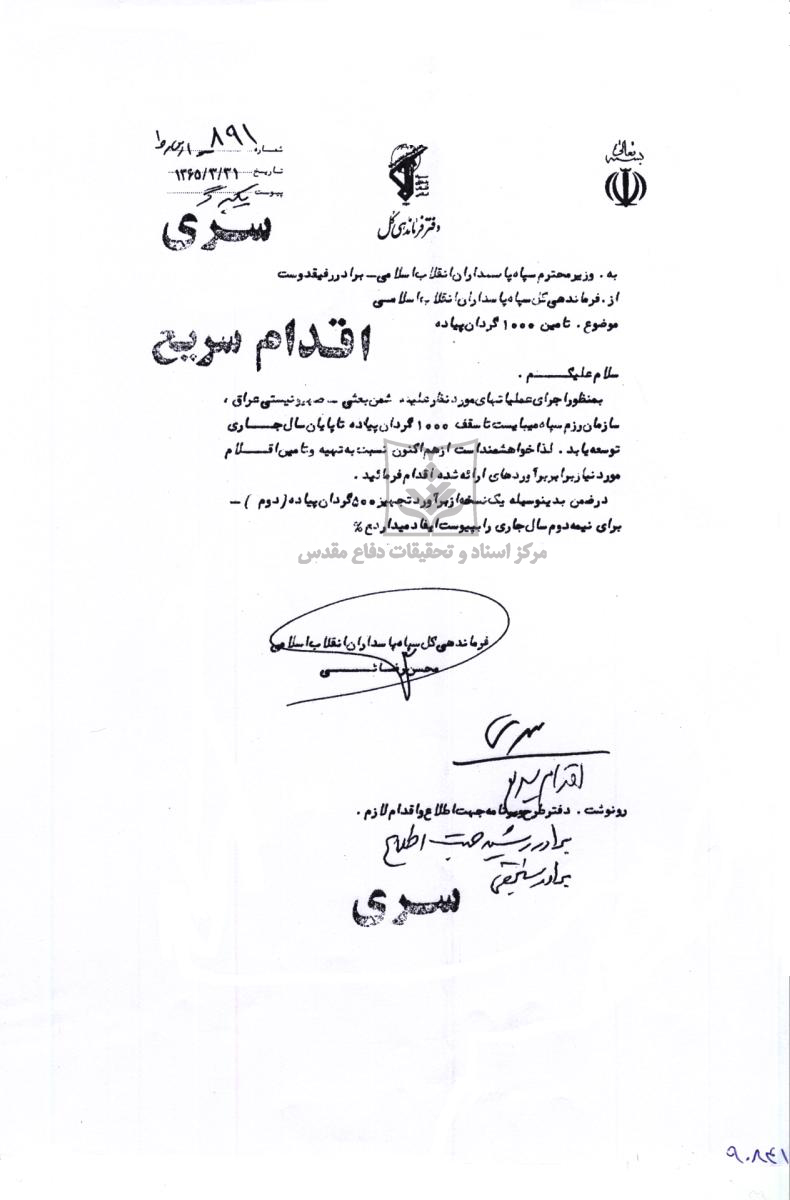 بسمه تعالی
دفتر فرماندهی کل
شماره ۸۹۱
تاریخ ۱۳۶۵/۳/۳۱
پیوست یکبرگ
سری
به . وزیر محترم سپاه پاسداران انقلاب اسلامی – برادر رفیقدوست
از . فرماندهی کل سپاه پاسداران انقلاب اسلامی
موضوع . تامین ۱۰۰۰ گردان پیاده
اقدام سریع
سلام علیکم .
بمنظور اجرای عملیاتهای مورد نظر علیه دشمن بعثی – صهیونیستی عراق ،
سازمان رزم سپاه میبایست تا سقف ۱۰۰۰ گردان پیاده تا پایان سال جاری
توسعه یابد . لذا خواهشمند است از هم اکنون نسبت به تهیه و تامین اقلام
مورد نیاز برابر برآوردهای ارائه شده اقدام فرمائید .
در ضمن بدینوسیله یک نسخه از برآورد تجهیز ۵۰۰ گردان پیاده ( دوم ) –
برای نیمه دوم سال جاری را بپیوست ایفاد میدارد ع %
مرکز اسناد و تحقیقات دفاع مقدس
فرماندهی کل سپاه پاسداران انقلاب اسلامی
محسن رضائی
سری
اقدام سریع
رونوشت . دفتر طرح و برنامه جهت اطلاع و اقدام لازم .
برادر رشید جهت اطلاع
برادر
سری
۹۰۸۴۱